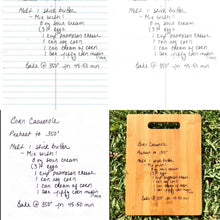 Melt 1 stick butter
- Mix with:
8 oz sour cream
(3) eggs
1 cup parmesan cheese
1 can oat corn
1 can cream of corn
1 box jiffy corn muffin mix
Bake @ 350° for 45-50 min
Melt 1 stick butter
- Mix with:
8 oz sour cream
(3) eggs
1 cup parmesan cheese
1 can corn
1 can cream of corn
1 box jiffy corn muffin mix
Bake @ 350° for 45-50 min
Corn Casserole
Preheat to 350°
Melt 1 stick butter
- Mix with:
8 oz sour cream
(3) eggs
1 cup parmesan cheese
1 can corn
1 can cream of corn
1 box jiffy corn muffin mix
Bake @ 350° for 45-50 min
Corn Casserole
Preheat to 350°
Melt 1 stick butter
- Mix with:
8 oz sour cream
(3) eggs
1 cup parmesan cheese
1 can corn
1 can cream of corn
1 box jiffy corn muffin mix
Bake @ 350° for 45-50 min